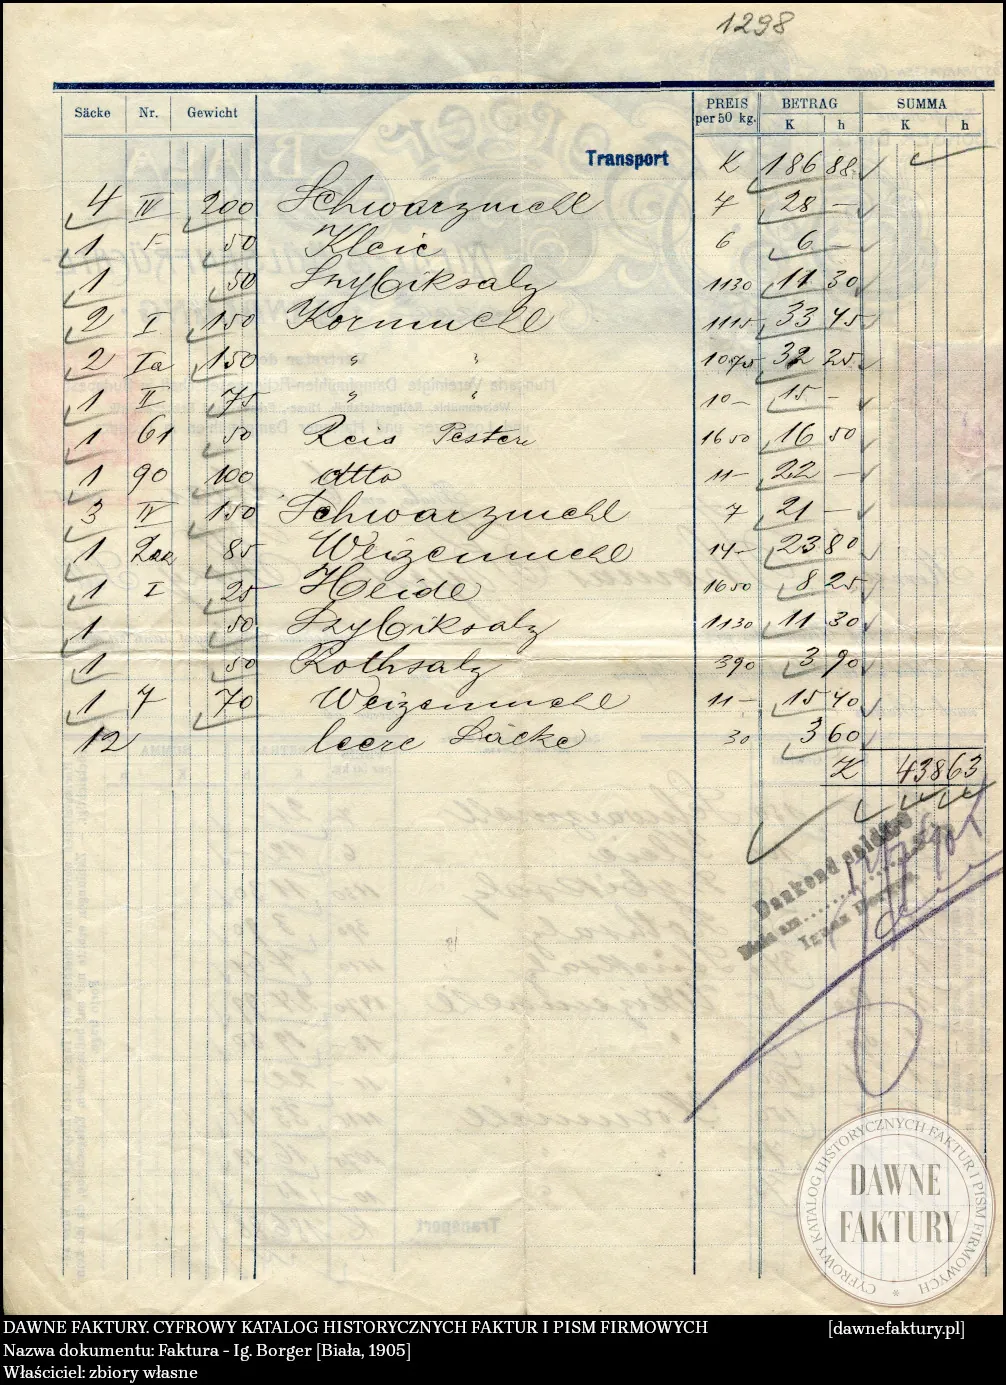 1298
Säcke Nr. Gewicht PREIS per 50 kg. BETRAG K h SUMMA K h
Transport K 186 88
4 IV 200 Schwarzmehl 7 28 —
1 F 50 Kleie 6 6 —
1 50 Szybiksalz 11 30 11 30
2 I 150 Kornmehl 11 15 33 45
2 Ia 150 " " 10 75 32 25
1 II 75 " " 10 — 15 —
1 61 50 Reis Pester 16 50 16 50
1 90 100 dtto 11 — 22 —
3 IV 150 Schwarzmehl 7 21 —
1 85 Weizenmehl 14 — 23 80
1 I 25 Heide 16 50 8 25
1 50 Szybiksalz 11 30 11 30
1 50 Rothsalz 3 90 3 90
1 7 70 Weizenmehl 11 — 15 40
12 leere Säcke 30 3 60
K 438 63
Dankend saldirt
Biala am
DAWNE FAKTURY
CYFROWY KATALOG HISTORYCZNYCH FAKTUR I PISM FIRMOWYCH
DAWNE FAKTURY. CYFROWY KATALOG HISTORYCZNYCH FAKTUR I PISM FIRMOWYCH [dawnefaktury.pl]
Nazwa dokumentu: Faktura - Ig. Borger [Biała, 1905]
Właściciel: zbiory własne